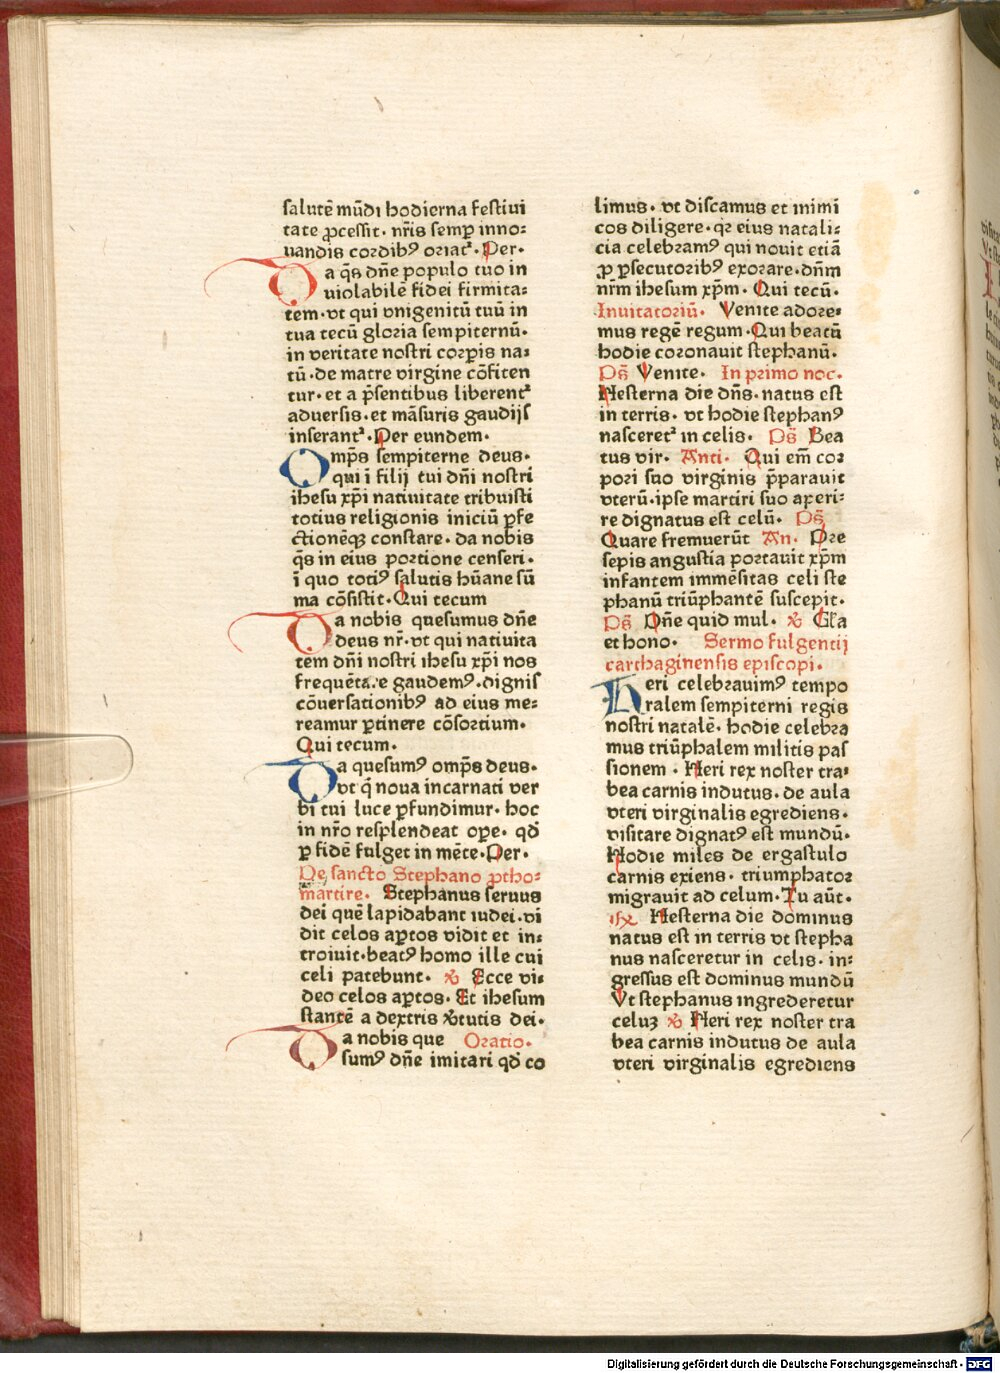 salutē mūdi hodierna festiui
tate ꝓcessit · nr̄is semꝑ inno⸗
uandis cordibꝰ oriat᷑ · Per ·
Da q̄s dn̄e populo tuo in
uiolabilē fidei firmita⸗
tem · vt qui vnigenitū tuū in
tua tecū gloria sempiternū ·
in veritate nostri corꝑis na⸗
tū · de matre virgine cōfiten
tur · et a p̄sentibus liberent᷑
aduersis · et māsuris gaudijs
inserant᷑ · Per eundem ·
Omp̄s sempiterne deus ·
qui ī filij tui dn̄i nostri
ihesu xp̄i natiuitate tribuisti
totius religionis iniciū ꝑfe
ctionēqꝫ constare · da nobis
q̄s in eius portione censeri ·
ī quo totiꝰ salutis hūane sū
ma cōsistit · Qui tecum
Da nobis quesumus dn̄e
deus nr̄ · vt qui natiuita
tem dn̄i nostri ihesu xp̄i nos
frequētare gaudemꝰ · dignis
cōuersationibꝰ ad eius me⸗
reamur ꝑtinere cōsortium ·
Qui tecum ·
Da quesumꝰ omp̄s deus ·
vt q̄ noua incarnati ver
bi tui luce ꝑfundimur · hoc
in nr̄o resplendeat oꝑe · qd̄
ꝑ fidē fulget in mēte · Per ·
De sancto Stephano ꝓtho⸗
martire · Stephanus seruus
dei quē lapidabant iudei · vi
dit celos aꝑtos vidit et in⸗
troiuit · beatꝰ homo ille cui
celi patebunt · ℣ Ecce vi⸗
deo celos aꝑtos · Et ihesum
stantē a dextris v̄tutis dei ·
Da nobis que Oratio ·
sumꝰ dn̄e imitari qd̄ co
limus · vt discamus et inimi
cos diligere · qꝛ eius natali⸗
cia celebramꝰ qui nouit etiā
ꝓ ꝑsecutoribꝰ exorare · dn̄m
nr̄m ihesum xp̄m · Qui tecū ·
Inuitatoriū · Venite adore⸗
mus regē regum · Qui beatū
hodie coronauit stephanū ·
Ps̄ Venite · In primo noc ·
Hesterna die dn̄s · natus est
in terris · vt hodie stephanꝰ
nasceret᷑ in celis · Ps̄ Bea
tus vir · Anti · Qui em̄ cor
pori suo virginis p̄parauit
vterū · ipse martiri suo aperi⸗
re dignatus est celū · Ps̄
Quare fremuerūt An · Pre
sepis angustia portauit xp̄m
infantem immēsitas celi ste
phanū triūphantē suscepit ·
Ps̄ Dn̄e quid mul · ℣ Gl̄a
et hono · Sermo fulgentij
carthaginensis episcopi ·
Heri celebrauimꝰ tempo
ralem sempiterni regis
nostri natalē · hodie celebra
mus triūphalem militis pas
sionem · Heri rex noster tra⸗
bea carnis indutus · de aula
vteri virginalis egrediens ·
visitare dignatꝰ est mundū ·
Hodie miles de ergastulo
carnis exiens · triumphator
migrauit ad celum · Tu aūt ·
℟ Hesterna die dominus
natus est in terris vt stepha
nus nasceretur in celis · in⸗
gressus est dominus mundū
Vt stephanus ingrederetur
celuꝫ ℣ Heri rex noster tra
bea carnis indutus de aula
vteri virginalis egrediens
Digitalisierung gefördert durch die Deutsche Forschungsgemeinschaft - DFG